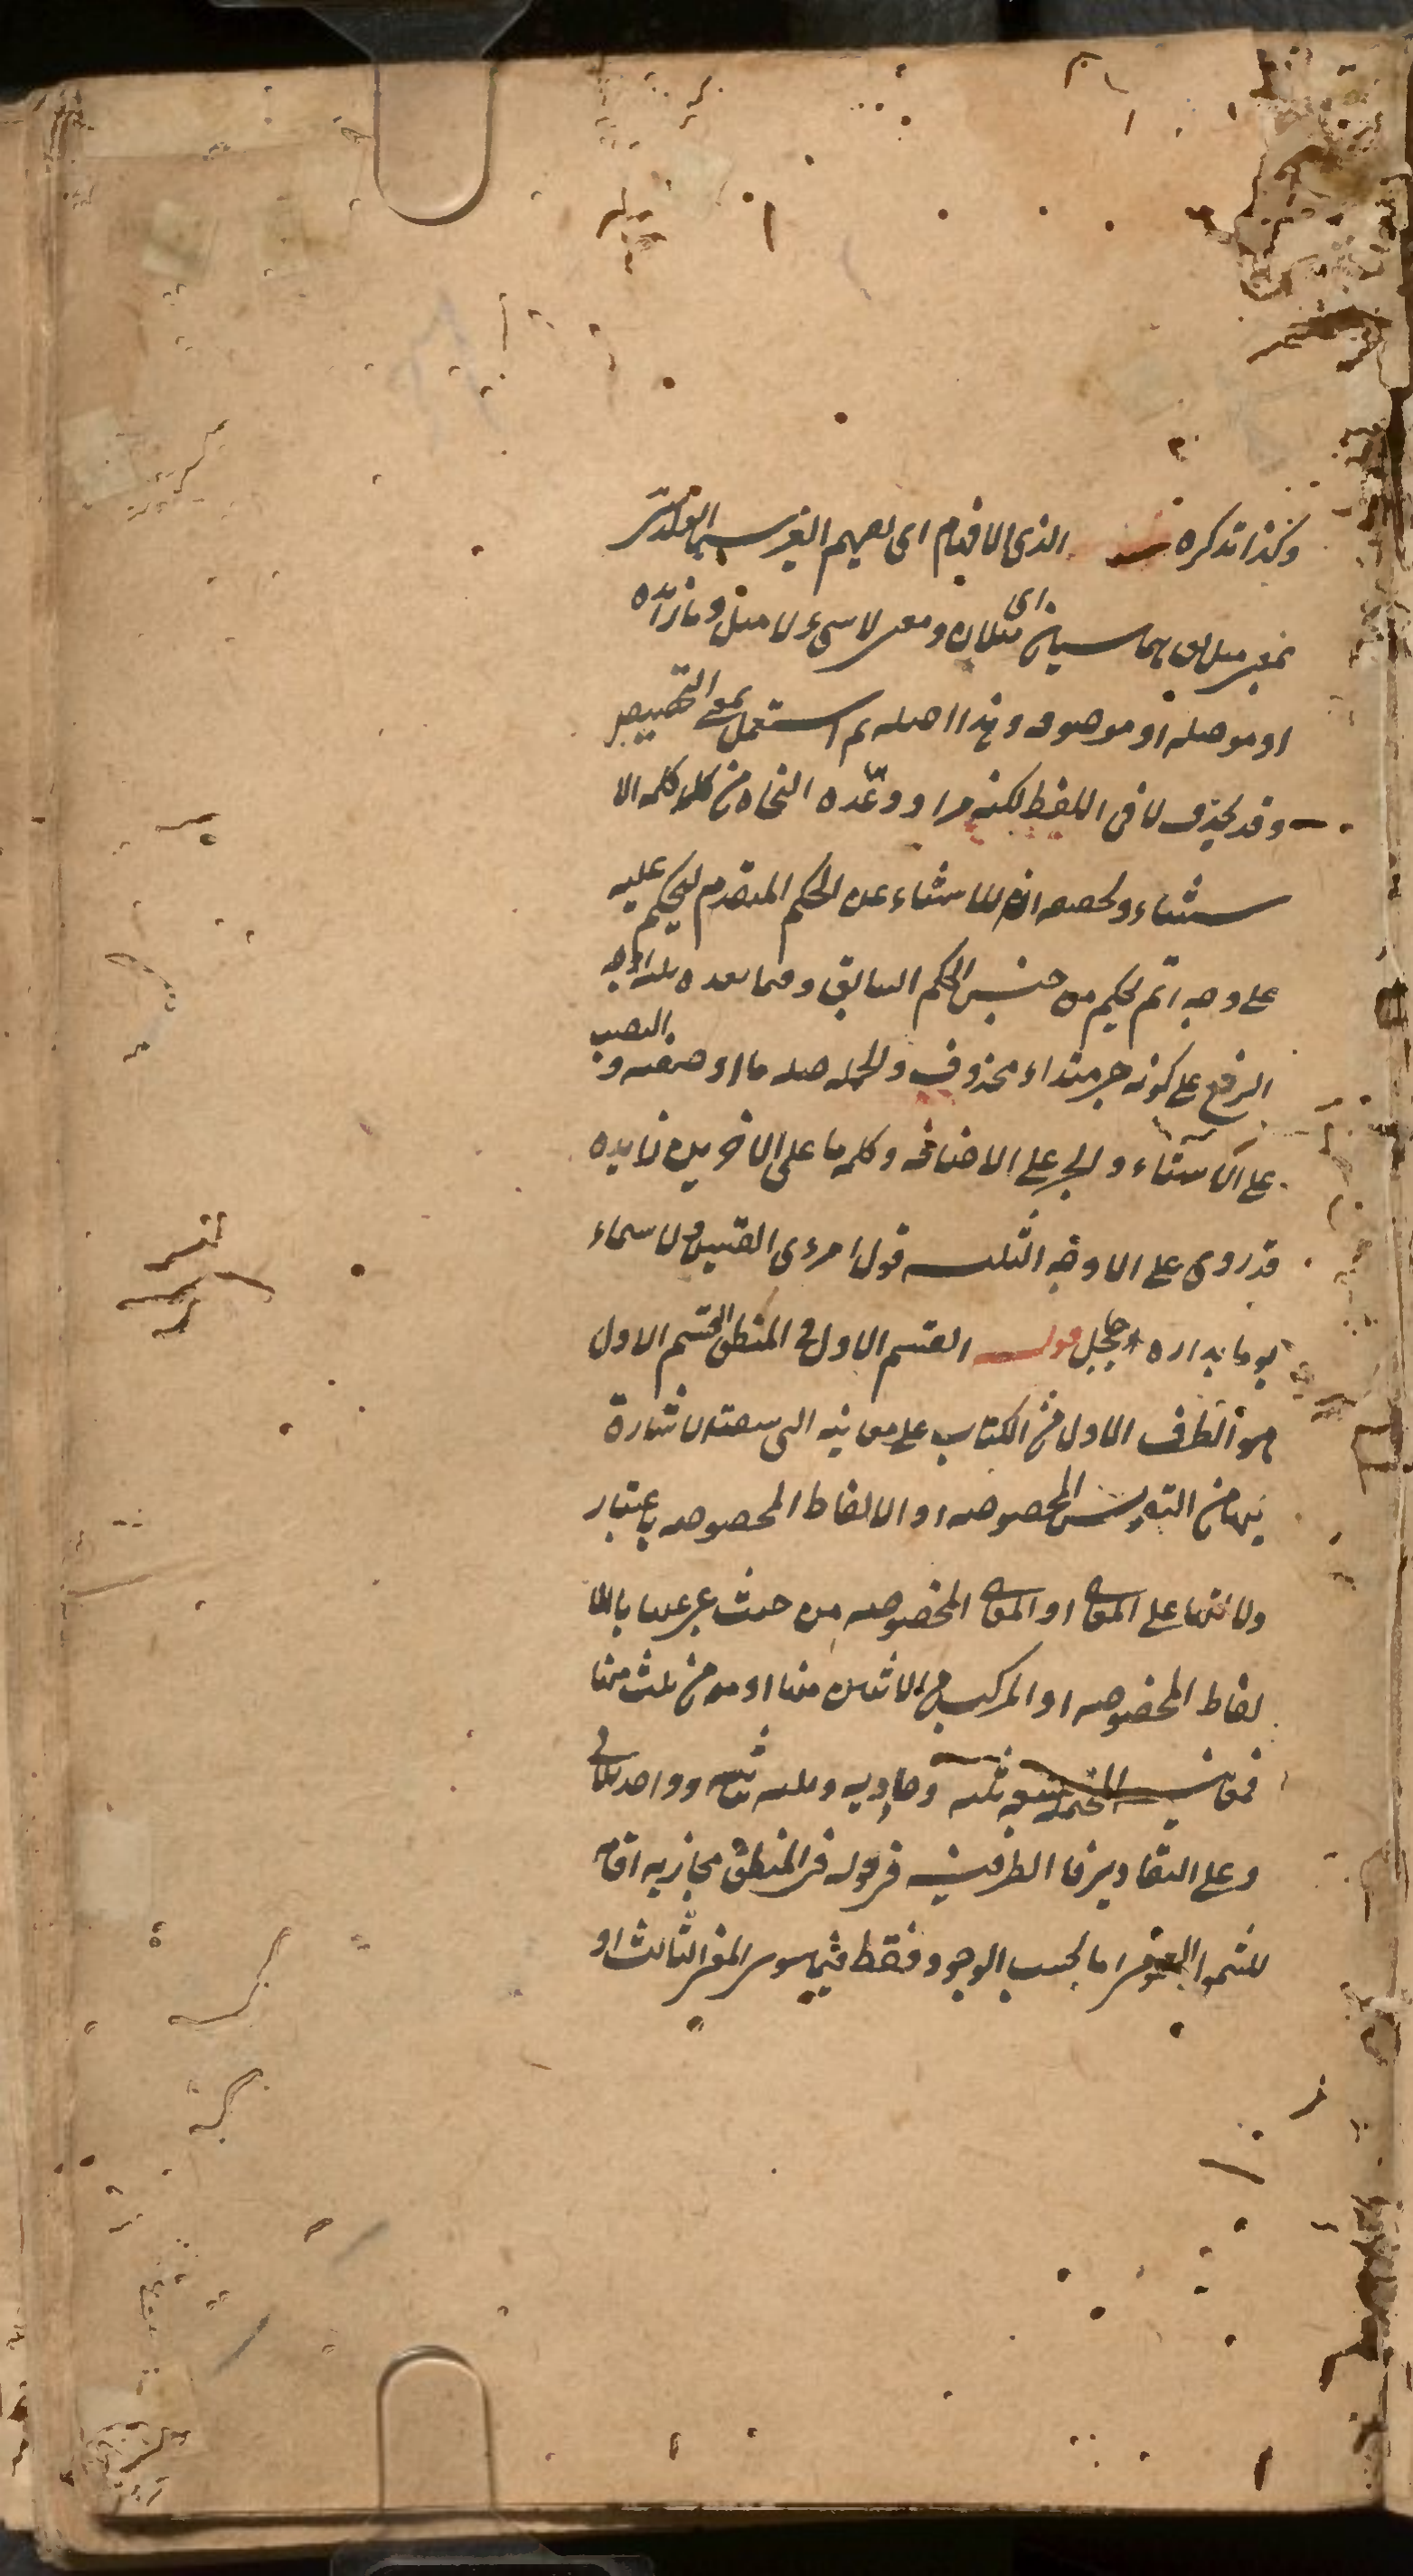 وكذا تذكره الذى الافهام اى لفهم الغير سيما الولد الاعز
بمعنى مثل يقال هما سيان اى مثلان ومعنى لا سيء لا مثل وما زائده
او موصله او موصوفه وهذا اصله ثم استعمل بمعنى التخصيص
وقد يحذف لا فى اللفظ لكنه مراد وعده النحاة من كلمه الا
ستثناء وتحصيصه انه للاستثناء عن الحكم المتقدم ليحكم عليه
على وجه اتم بحكم من جنس الحكم السابق وفيما بعده ثلثه اوجه
الرفع على كونه خبر مبتداء محذوف والجمله صله ما او صفته والنصب
على الاستثناء والجر على الاضافه وكلمه ما على الاخريين زايده
قد روى على الاوجه الثلثه قول امرءى القيس ولا سماء
يوما بداره جلجل قوله القسم الاول فى المنطق القسم الاول
هو الطرف الاول من الكتاب على معانيه التى سبقت الاشارة
اليها من النقوش المخصوصه او الالفاظ المخصوصه باعتبار
دلالتها على المعانى او المعانى المخصوصه من حيث عبر عنها بالا
لفاظ المخصوصه او المركب من الاثنين منها او من ثلث منها
فمعانيه المحتمله سبعه ثلثه وحاديه وثلثه ثنائيه وواحد ثلاثى
وعلى التقادير فالظرفيه فى قوله فى المنطق مجازيه اقامه
للشمول العمومى اما بحسب الوجود فقط فيما سوى المعنى الثالث او